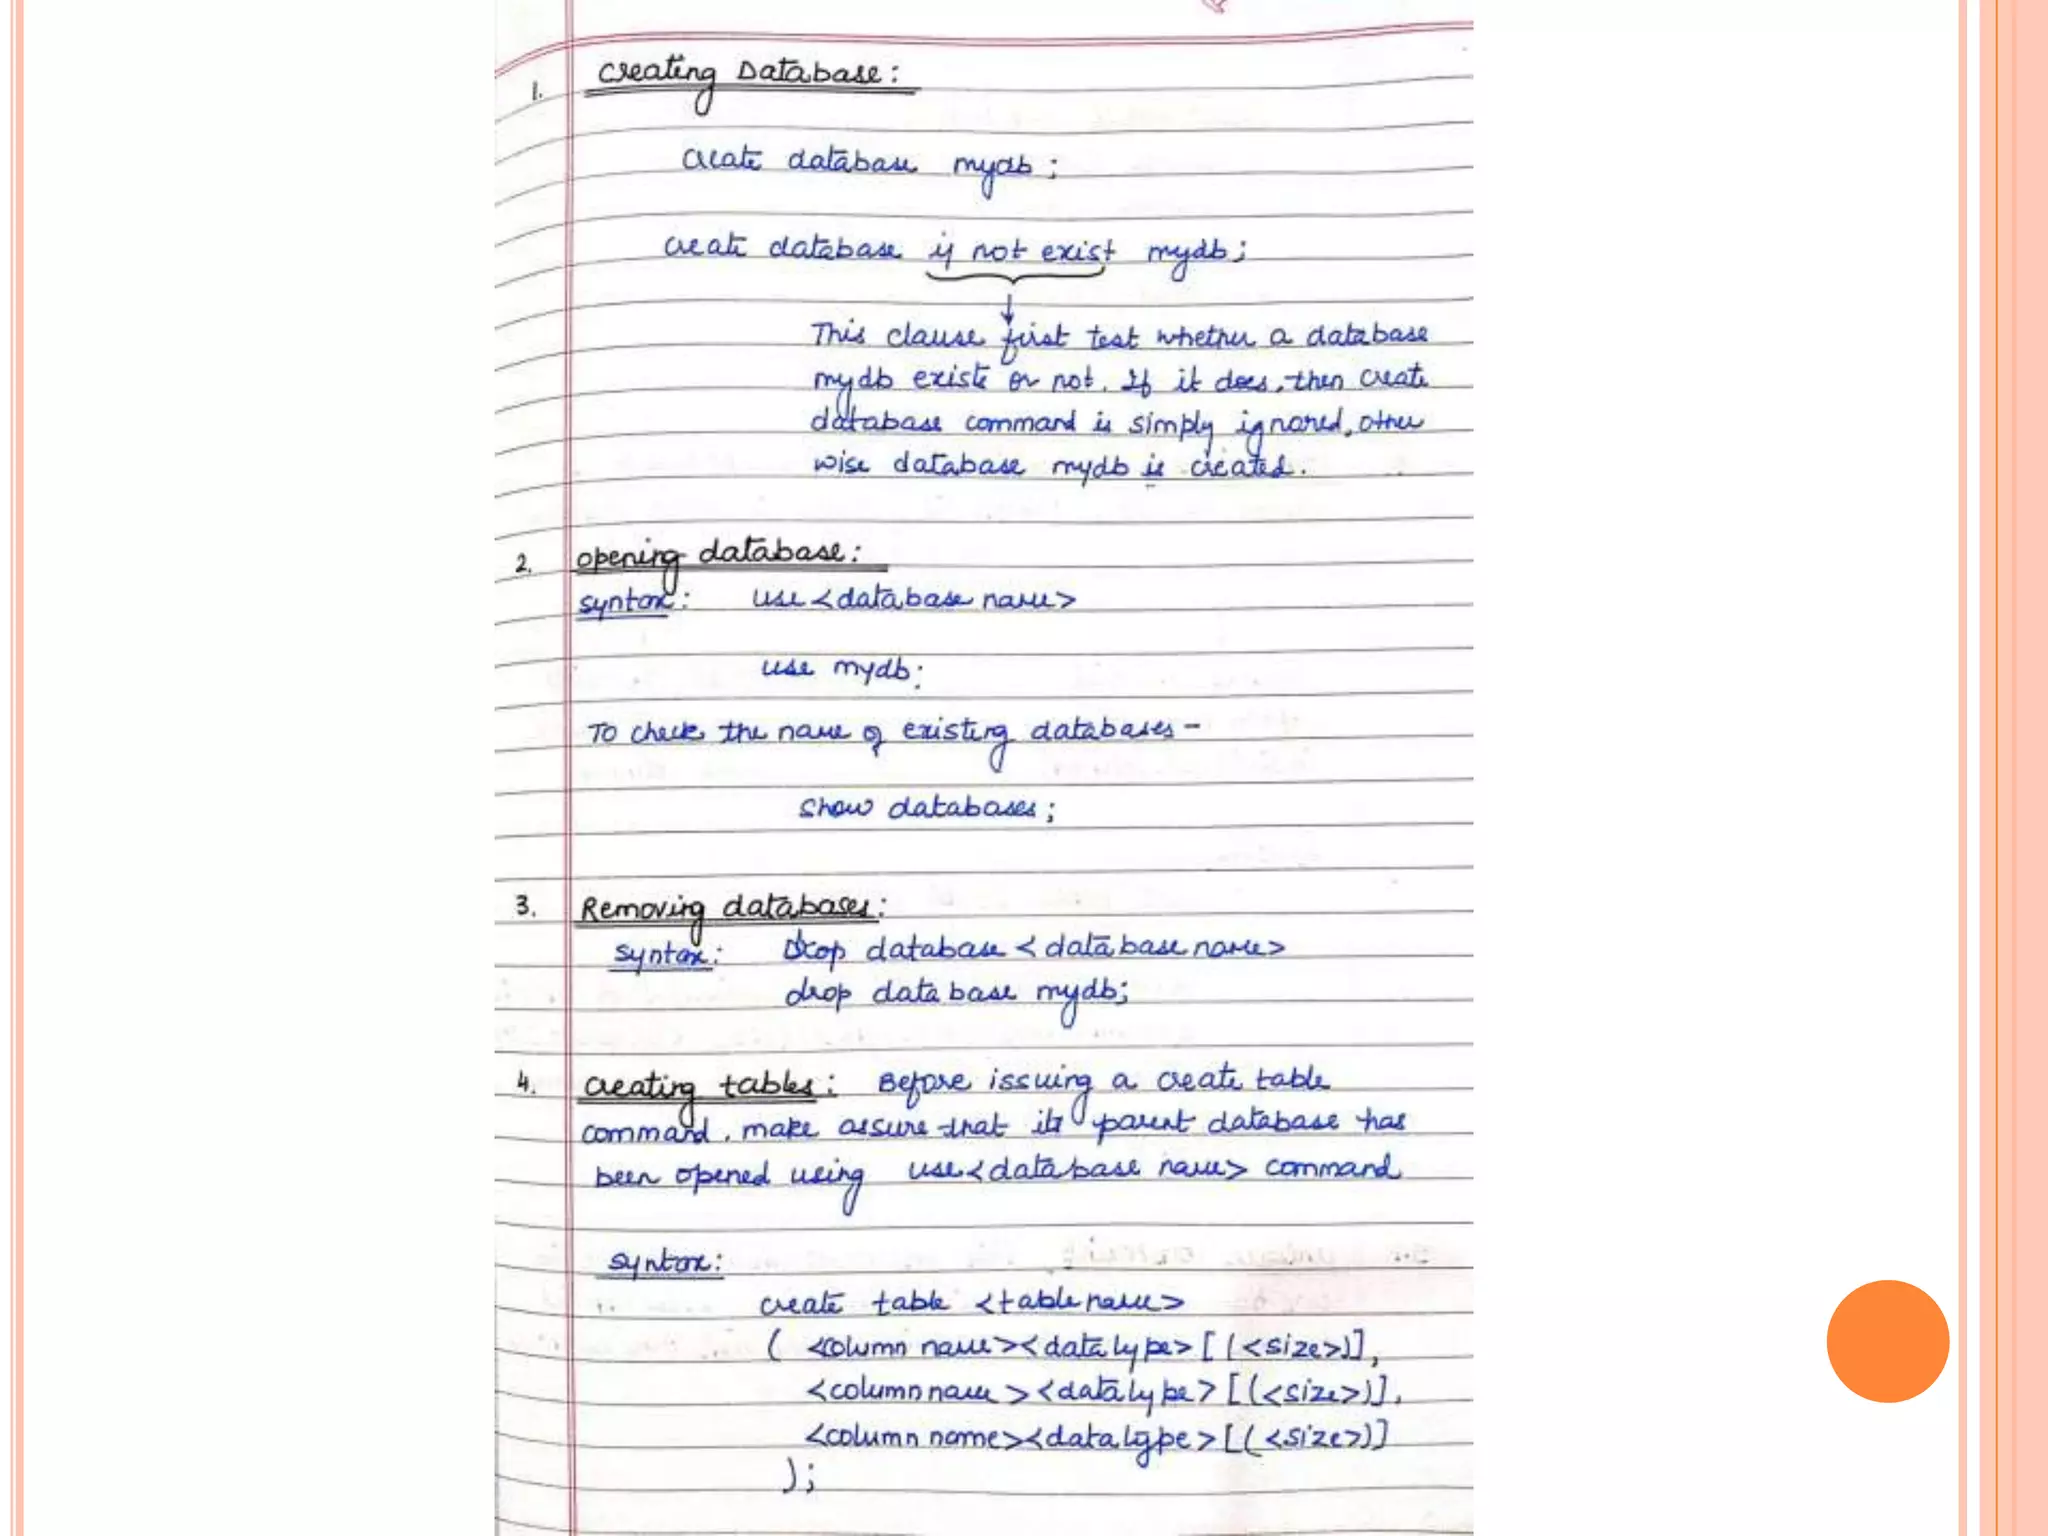 1. Creating Database:
create database mydb;
create database if not exist mydb;
This clause first test whether a database
mydb exists or not. If it does, then create
database command is simply ignored, other
wise database mydb is created.
2. opening database:
syntax: use <database name>
use mydb;
To check the name of existing databases -
Show databases;
3. Removing databases:
syntax: Drop database <database name>
drop database mydb;
4. creating tables: Before issuing a create table
command, make assure that its parent database has
been opened using use <database name> command
syntax:
create table <table name>
( <column name><data type> [ (<size>)],
<column name><data type> [(<size>)],
<column name><data type> [(<size>)]
);